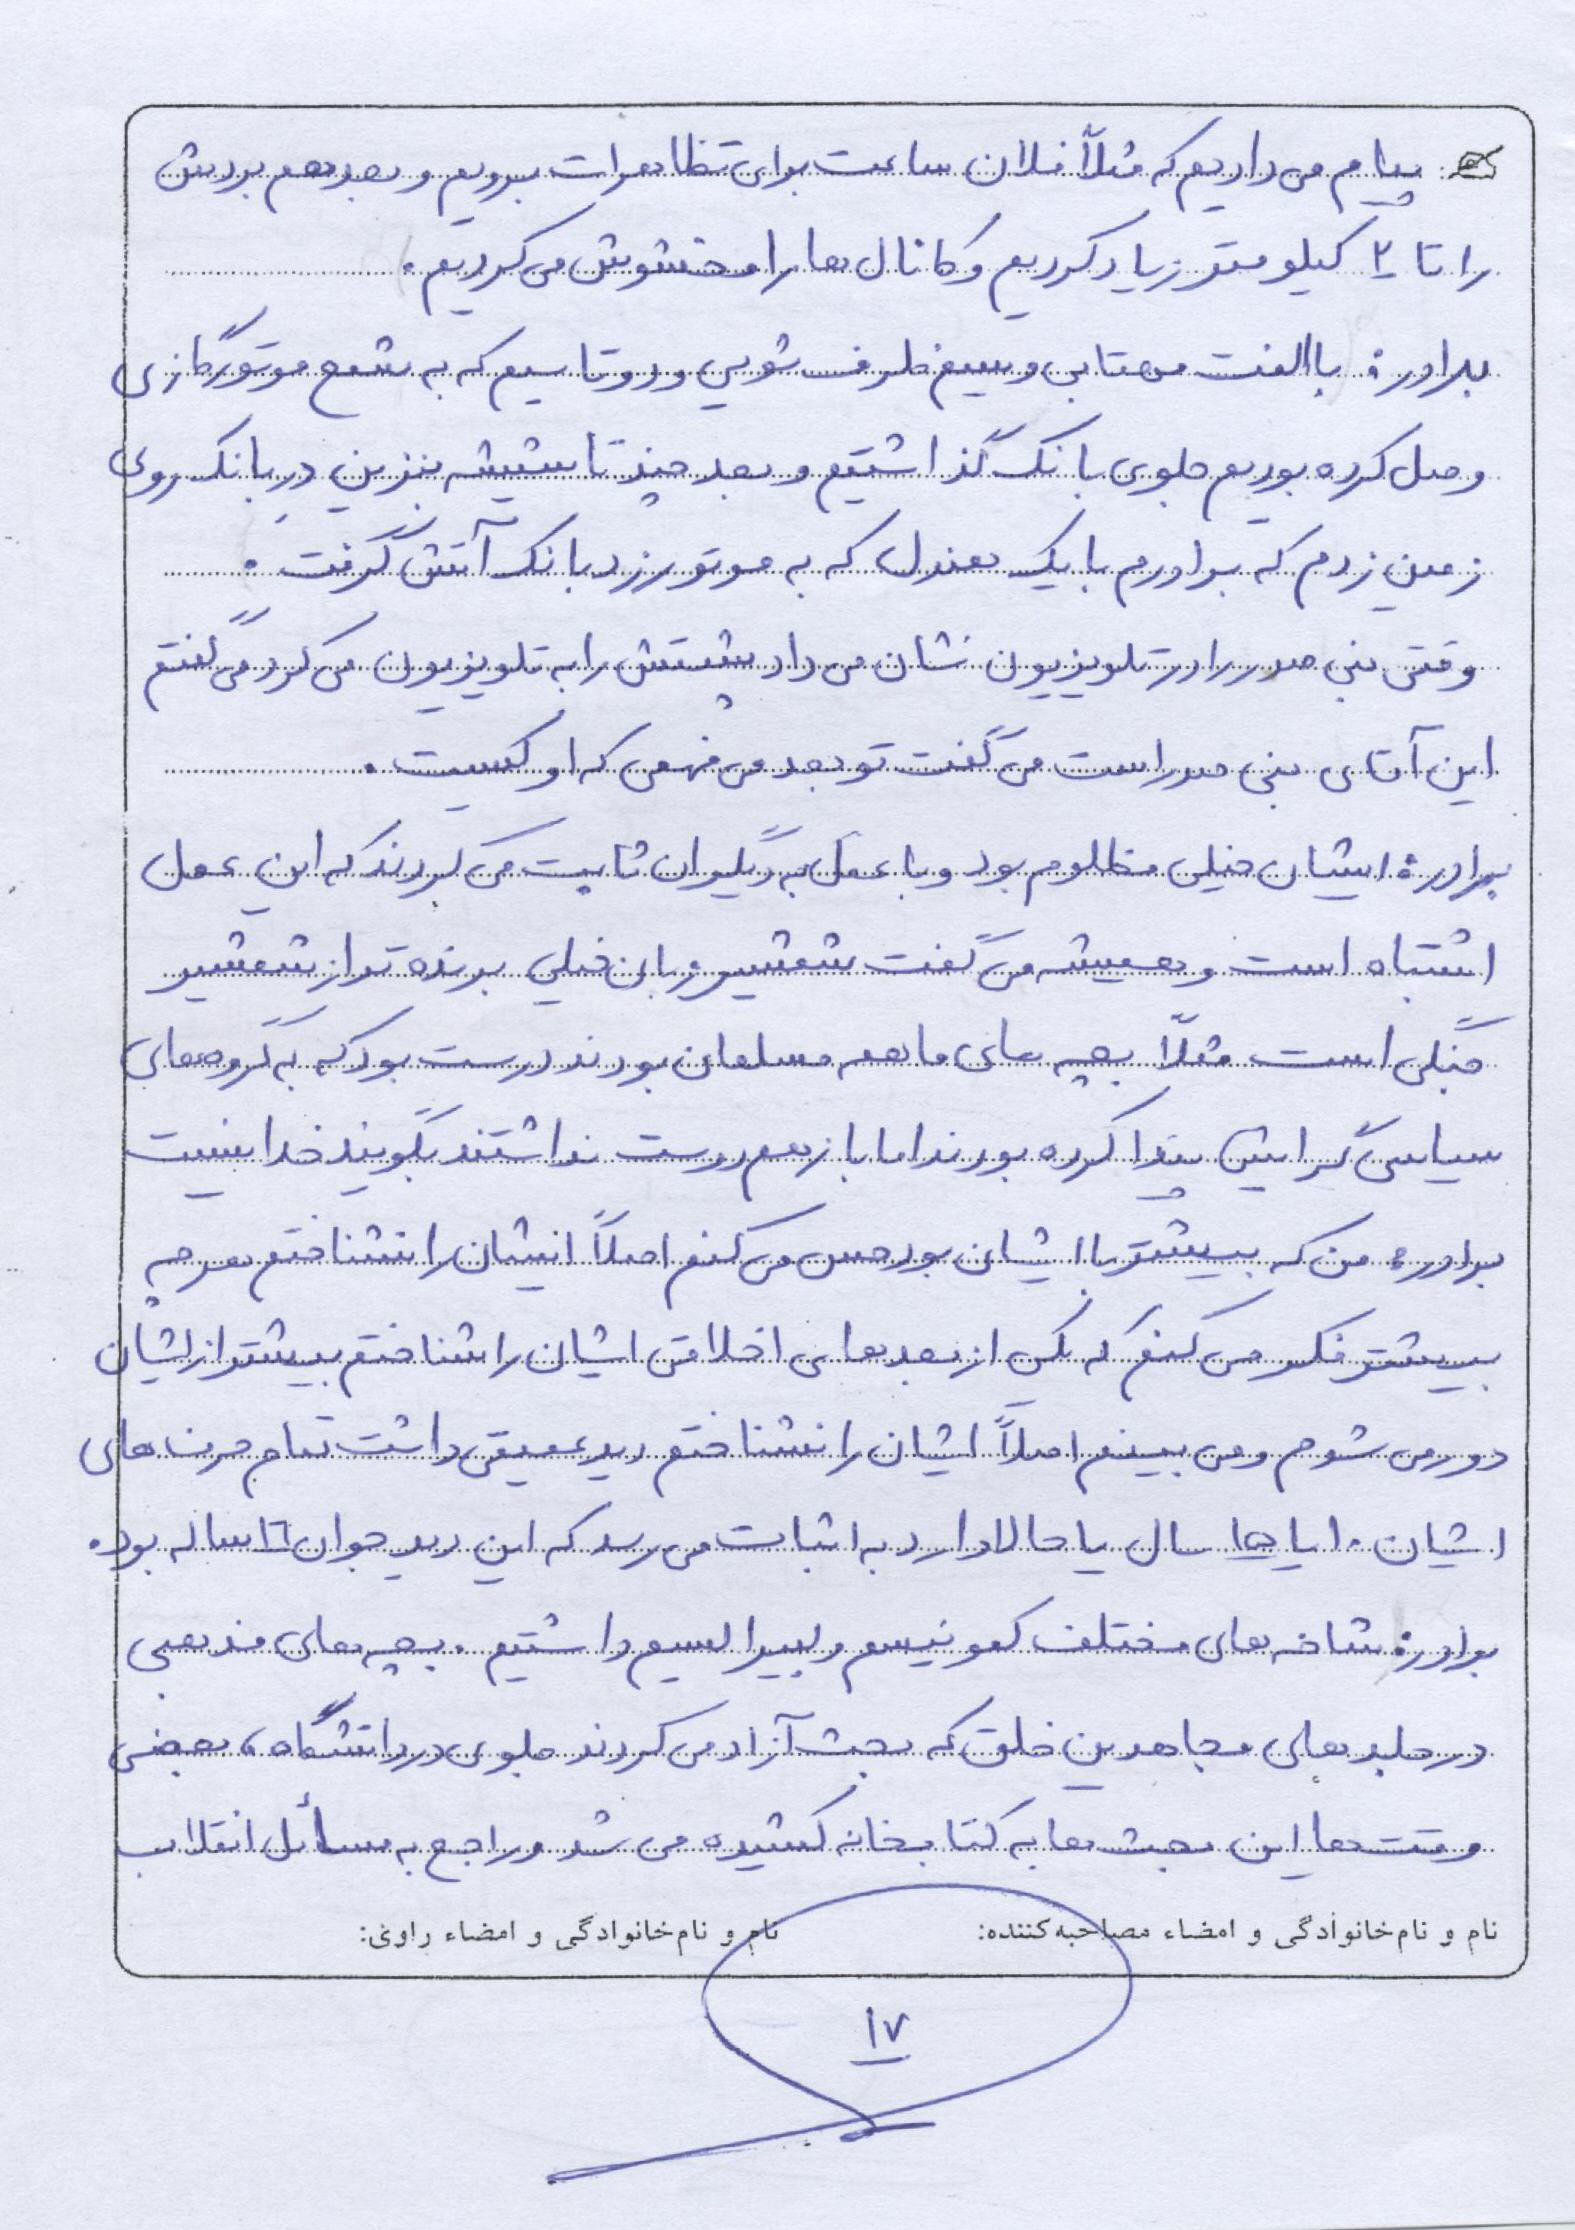 پیام می دادیم که مثلاً فلان ساعت برای تظاهرات برویم و بعد هم بردش
را تا ۲ کیلومتر زیاد کردیم و کانال ها را مخشوش می کردیم.
برادر: با الفت مهتابی و سیم ظرف شویی و دو تا سیم که به شمع موتور گازی
وصل کرده بودیم جلوی بانک گذاشتیم و بعد چند تا شیشه بنزین در بانک روی
زمین زدم که برادرم با یک هندل که به موتور زد بانک آتش گرفت.
وقتی بنی صدر را در تلویزیون نشان می داد پشتش را به تلویزیون می کرد می گفتم
این آقای بنی صدر است می گفت تو بعد می فهمی که او کسیت.
برادر: ایشان خیلی مظلوم بود و با عمل به دیگران ثابت می کردند که این عمل
اشتباه است و همیشه می گفت شمشیر زبان خیلی برنده تر از شمشیر
جنگی است مثلاً بچه های ما همه مسلمان بودند درست بود که به گروههای
سیاسی گرایش پیدا کرده بودند اما باز هم دوست نداشتند بگویند خدا نیست
برادر: من که بیشتر با ایشان بود حس می کنم اصلاً ایشان را نشناختم هر چه
بیشتر فکر می کنم که یکی از بعدهای اخلاقی ایشان را شناختم بیشتر از ایشان
دور می شوم و می بینم اصلاً ایشان را نشناختم دید عمیقی داشت تمام حرف های
ایشان. سال یا حالا دارد به اثبات می رسد که این دید جوان ۱۶ ساله بود.
برادر: شاخه های مختلف کمونیسم و لیبرالسیم داشتیم. بچه های مذهبی
در جلد های مجاهدین خلق که بحث آزاد می کردند جلوی در دانشگاه، بعضی
وقت ها این بحث ها به کتابخانه کشیده می شد و راجع به مسائل انقلاب
نام و نام خانوادگی و امضاء مصاحبه کننده: نام و نام خانوادگی و امضاء راوی:
۱۷